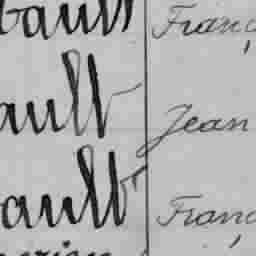 bault Franç
ault Jean
ault Franç